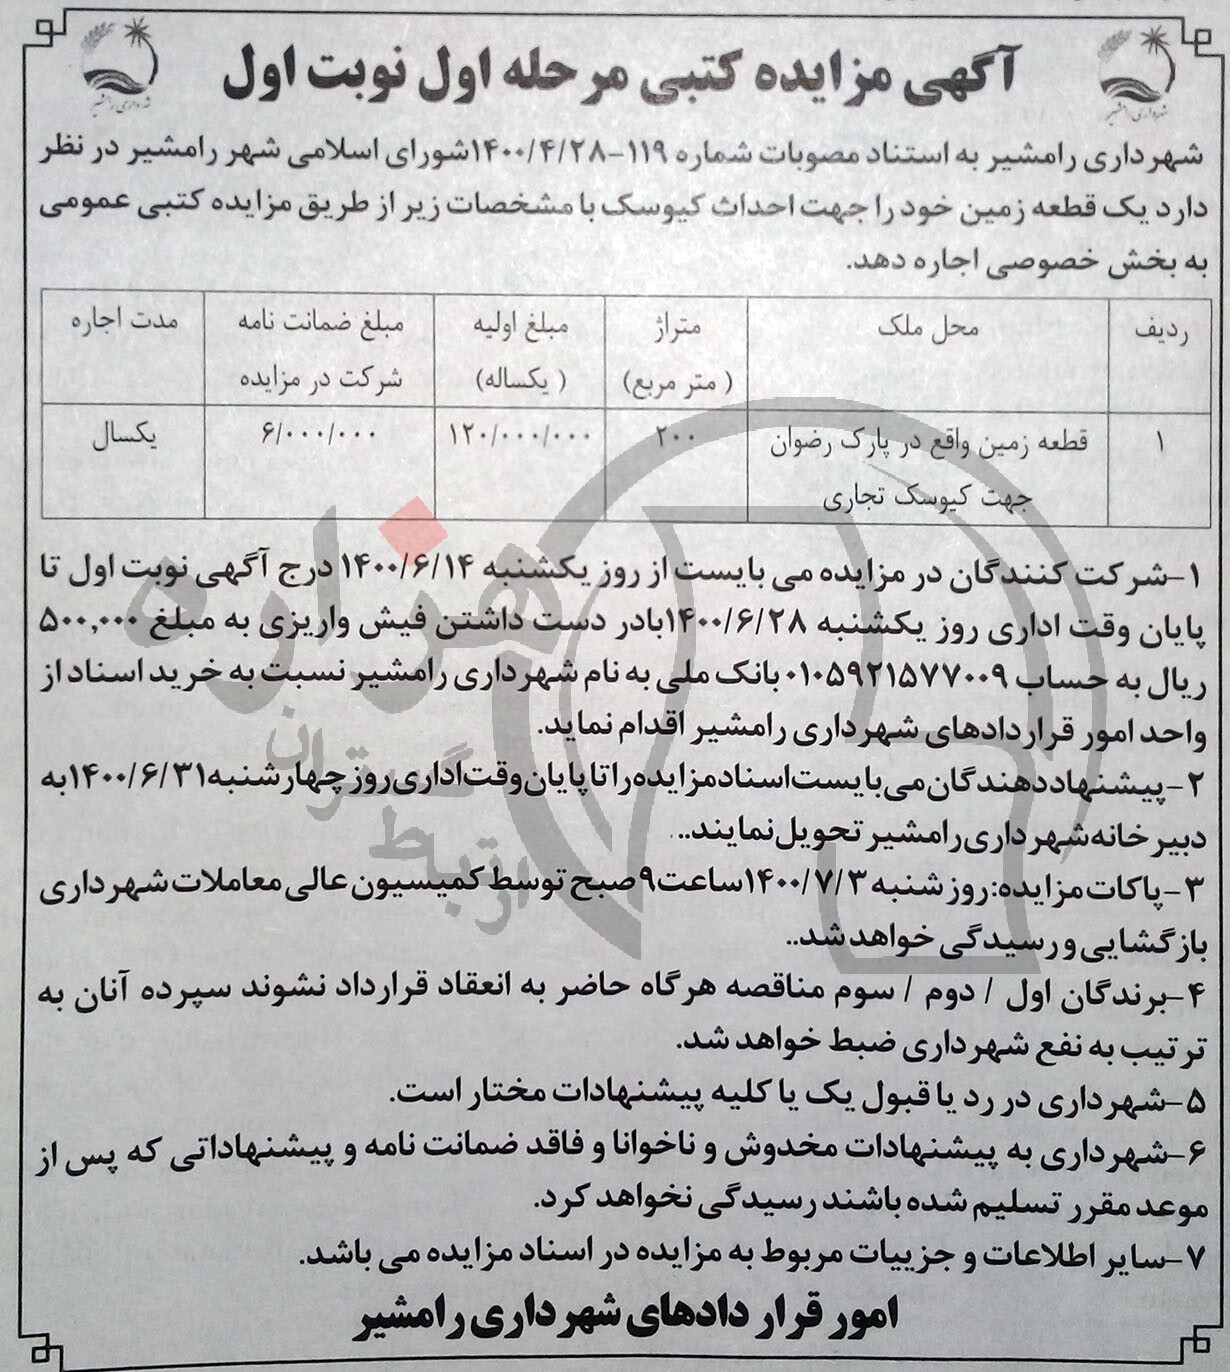 آگهی مزایده کتبی مرحله اول نوبت اول
شهرداری رامشیر
شهرداری رامشیر
شهرداری رامشیر به استناد مصوبات شماره ۱۱۹-۱۴۰۰/۴/۲۸شورای اسلامی شهر رامشیر در نظر
دارد یک قطعه زمین خود را جهت احداث کیوسک با مشخصات زیر از طریق مزایده کتبی عمومی
به بخش خصوصی اجاره دهد.
ردیف محل ملک متراژ مبلغ اولیه مبلغ ضمانت نامه مدت اجاره
(متر مربع) (یکساله) شرکت در مزایده
۱ قطعه زمین واقع در پارک رضوان ۲۰۰ ۱۲۰/۰۰۰/۰۰۰ ۶/۰۰۰/۰۰۰ یکسال
جهت کیوسک تجاری
۱-شرکت کنندگان در مزایده می بایست از روز یکشنبه ۱۴۰۰/۶/۱۴ درج آگهی نوبت اول تا
پایان وقت اداری روز یکشنبه ۱۴۰۰/۶/۲۸بادر دست داشتن فیش واریزی به مبلغ ۵۰۰,۰۰۰
ریال به حساب ۰۱۰۵۹۲۱۵۷۷۰۰۹ بانک ملی به نام شهرداری رامشیر نسبت به خرید اسناد از
واحد امور قراردادهای شهرداری رامشیر اقدام نماید.
۲-پیشنهاددهندگان می بایست اسناد مزایده را تا پایان وقت اداری روز چهارشنبه ۱۴۰۰/۶/۳۱به
دبیرخانه شهرداری رامشیر تحویل نمایند..
۳-پاکات مزایده: روز شنبه ۱۴۰۰/۷/۳ساعت۹صبح توسط کمیسیون عالی معاملات شهرداری
بازگشایی و رسیدگی خواهد شد..
۴-برندگان اول / دوم / سوم مناقصه هرگاه حاضر به انعقاد قرارداد نشوند سپرده آنان به
ترتیب به نفع شهرداری ضبط خواهد شد.
۵-شهرداری در رد یا قبول یک یا کلیه پیشنهادات مختار است.
۶-شهرداری به پیشنهادات مخدوش و ناخوانا و فاقد ضمانت نامه و پیشنهاداتی که پس از
موعد مقرر تسلیم شده باشند رسیدگی نخواهد کرد.
۷-سایر اطلاعات و جزییات مربوط به مزایده در اسناد مزایده می باشد.
امور قرار دادهای شهرداری رامشیر
هزاره
ارتباط گستران